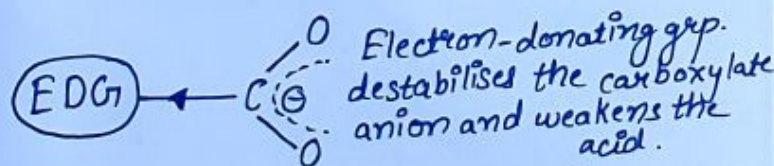 EDG
C
O
O
⊖
Electron-donating grp.
destabilises the carboxylate
anion and weakens the
acid.